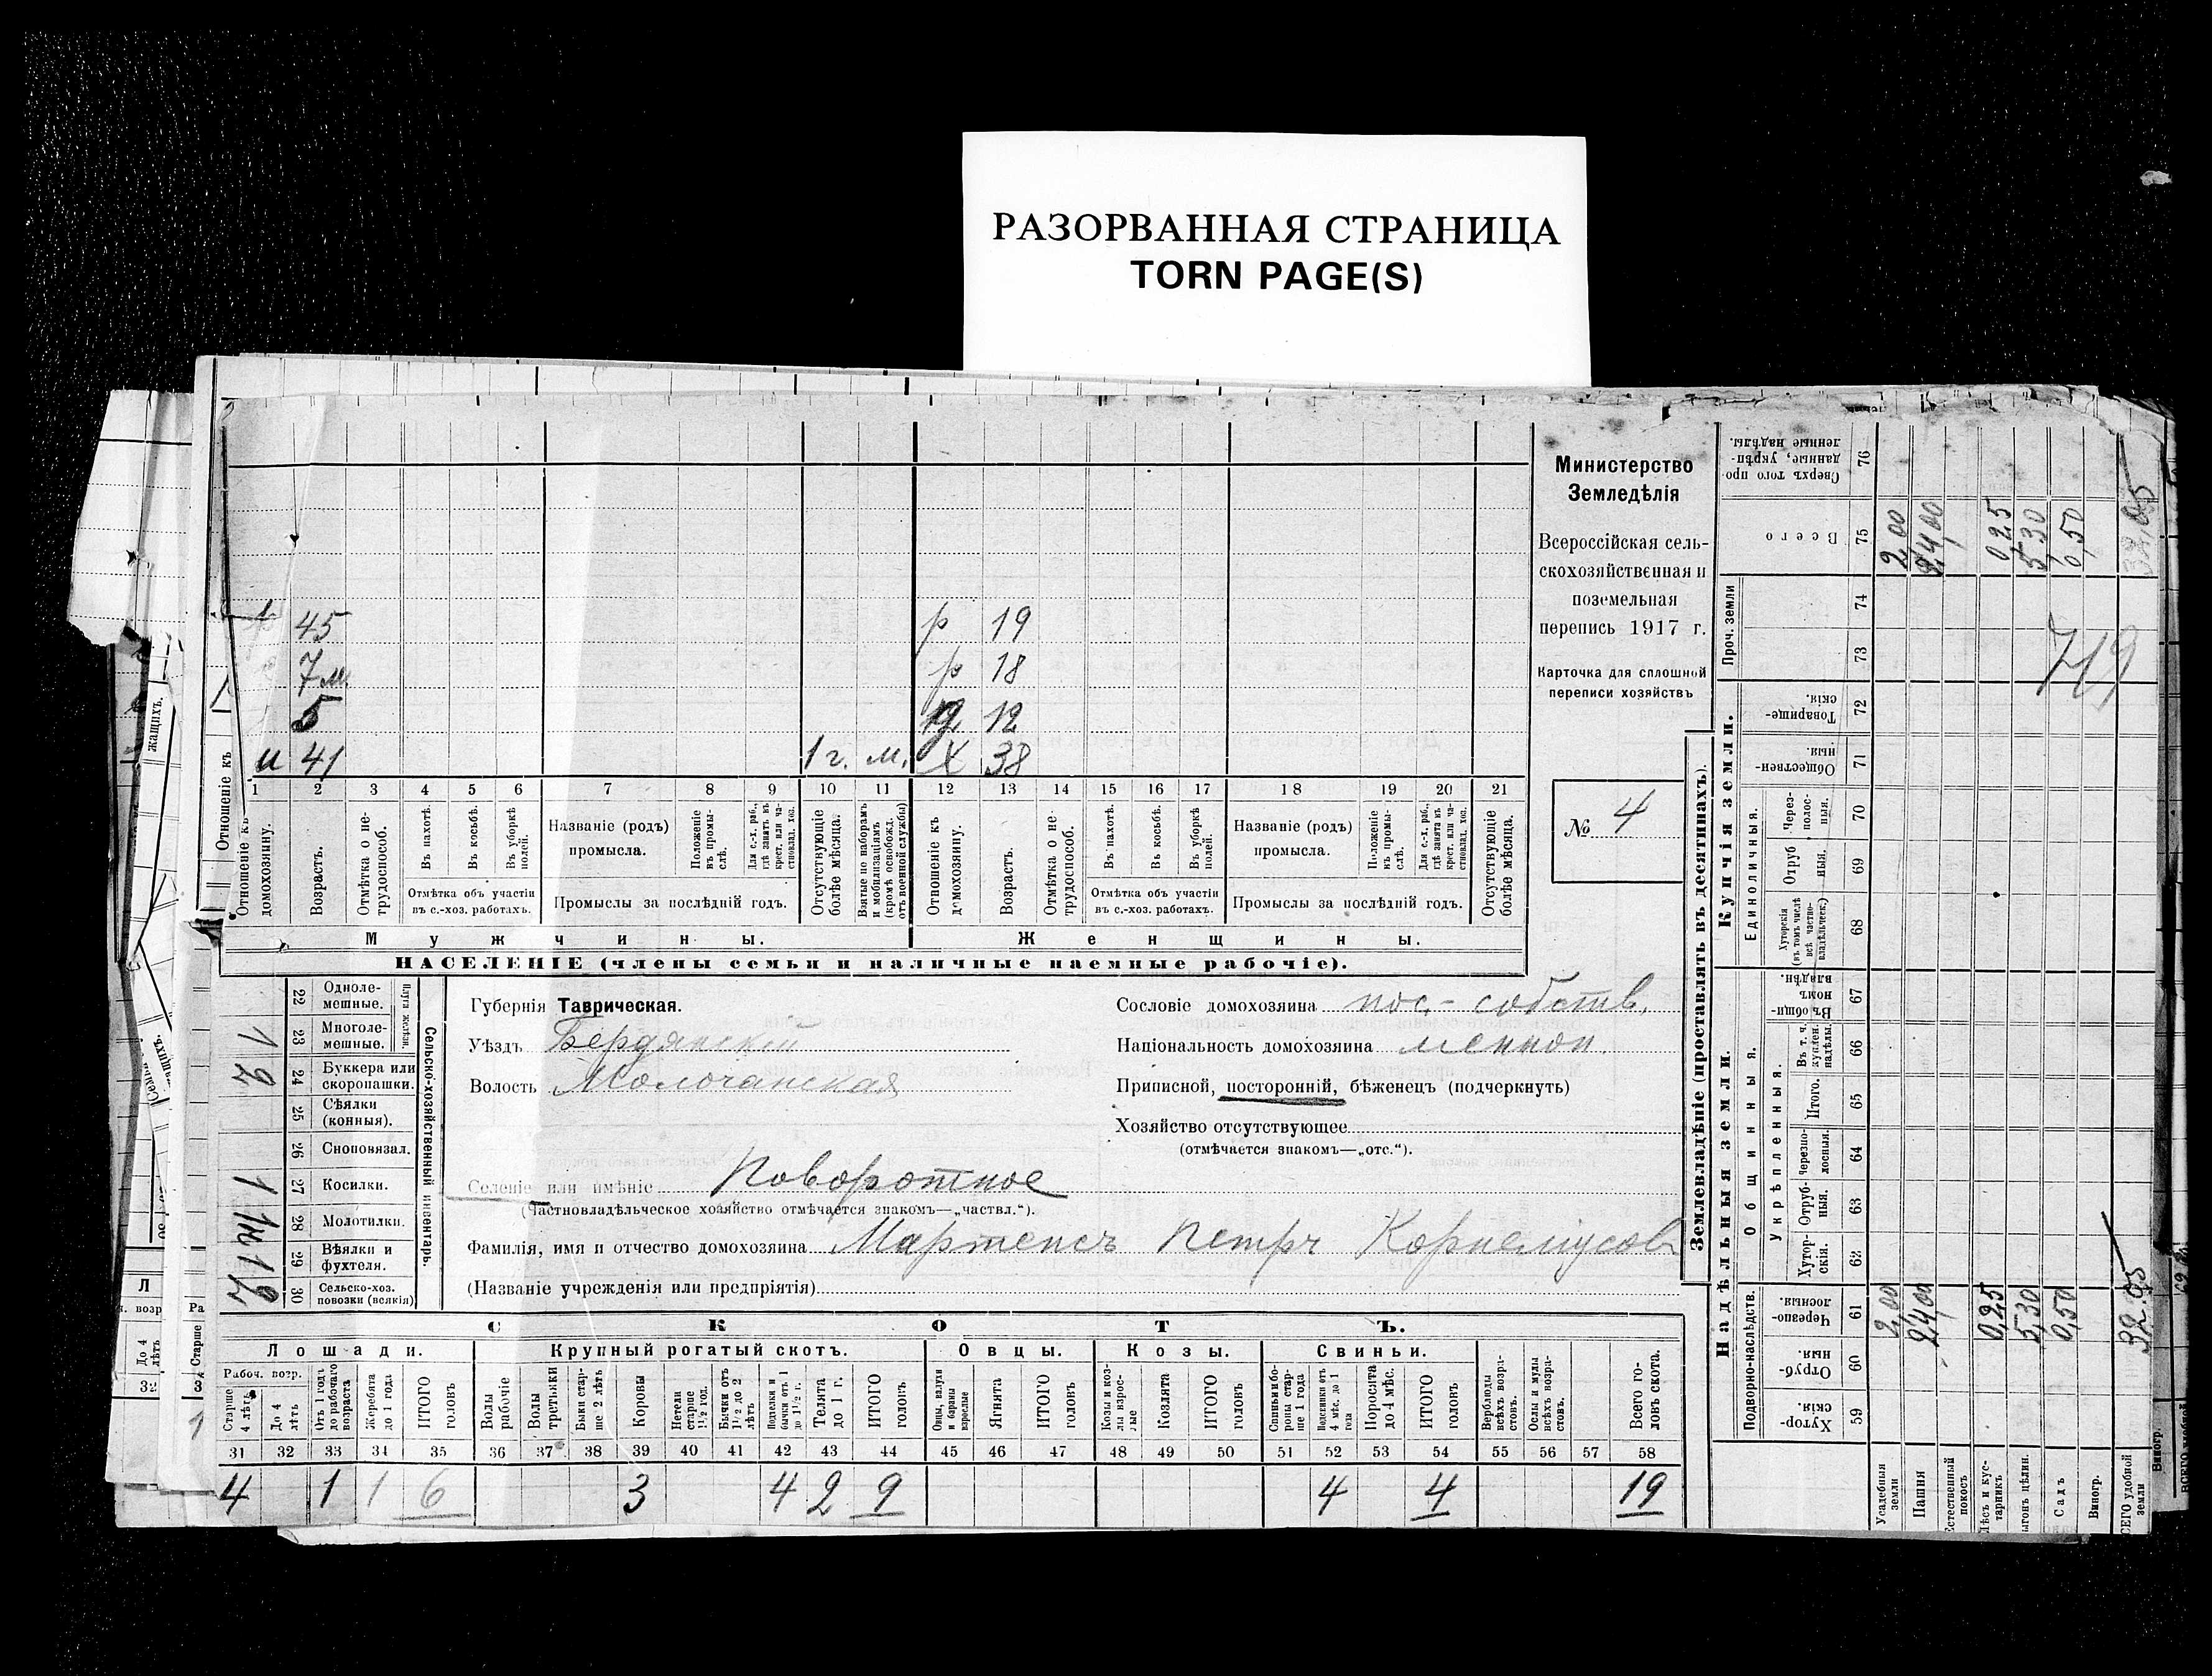 РАЗОРВАННАЯ СТРАНИЦА
TORN PAGE(S)
Министерство
Земледѣлія
Всероссійская сель-
скохозяйственная и
поземельная
перепись 1917 г.
Карточка для сплошной
переписи хозяйствъ
№ 4
45 р 19
7 м. р 18
5 12
41 1 г. м. Х 38
1 2 3 4 5 6 7 8 9 10 11 12 13 14 15 16 17 18 19 20 21
Отношеніе къ домохозяину.
Возрастъ.
Отмѣтка о не-трудоспособ.
Въ пахотѣ.
Въ косьбѣ.
Въ уборкѣ полей.
Отмѣтка объ участіи въ с.-хоз. работахъ.
Названіе (родъ) промысла.
Положеніе въ промы-слѣ.
Для с.-х. раб., гдѣ занятъ въ крест. или ча-стновлад. хоз.
Промыслы за послѣдній годъ.
Отсутствующіе болѣе мѣсяца.
Взятые по наборамъ и мобилизаціямъ (кромѣ освобожд. отъ военной службы)
Отношеніе къ домохозяину.
Возрастъ.
Отмѣтка о не-трудоспособ.
Въ пахотѣ.
Въ косьбѣ.
Въ уборкѣ полей.
Отмѣтка объ участіи въ с.-хоз. работахъ.
Названіе (родъ) промысла.
Положеніе въ промы-слѣ.
Для с.-х. раб., гдѣ занята въ крест. или ча-стновлад. хоз.
Промыслы за послѣдній годъ.
Отсутствующіе болѣе мѣсяца.
Мужчины. Женщины.
НАСЕЛЕНІЕ (члены семьи и наличные наемные рабочіе).
Сельско-хозяйственный инвентарь.
Плуги желѣзн.
22 Одноле-мешные.
23 Многоле-мешные. 1
24 Буккера или скоропашки. 2
25 Сѣялки (конныя).
26 Сноповязал.
27 Косилки. 1
28 Молотилки.
29 Вѣялки и фухтеля. 1
30 Сельско-хоз. повозки (всякія) 2
Губернія Таврическая.
Уѣздъ Бердянскій
Волость Молочанская
Сословіе домохозяина пос.- собств.
Національность домохозяина меннон.
Приписной, посторонній, бѣженецъ (подчеркнуть)
Хозяйство отсутствующее
(отмѣчается знакомъ—„отс.“).
Селеніе или имѣніе Поворотное
(Частновладѣльческое хозяйство отмѣчается знакомъ—„частвл.“).
Фамилія, имя и отчество домохозяина Мартенсъ Петръ Корнеліусов
(Названіе учрежденія или предпріятія)
СКОТЪ.
Лошади. Крупный рогатый скотъ. Овцы. Козы. Свиньи.
Рабоч. возр.
Старше 4 лѣтъ
До 4 лѣтъ
Отъ 1 года до рабочаго возраста
Жеребята до 1 года
ИТОГО головъ
Волы рабочіе
Волы третьяки
Быки стар-ше 2 лѣтъ
Коровы
Нетели старше 1½ год.
Бычки отъ 1½ до 2 лѣтъ
Подтелки и бычки отъ 1 до 1½ г.
Телята до 1 г.
ИТОГО головъ
Овцы, валухи и бараны взрослые
Ягнята
ИТОГО головъ
Козы и коз-лы взрос-лые
Козлята
ИТОГО головъ
Свиньи и бо-ровы стар-ше 1 года
Подсвинки отъ 4 мѣс. до 1 года
Поросята до 4 мѣс.
ИТОГО головъ
Верблюды всѣхъ возра-стовъ.
Ослы и мулы всѣхъ возра-стовъ.
Всего го-ловъ скота.
31 32 33 34 35 36 37 38 39 40 41 42 43 44 45 46 47 48 49 50 51 52 53 54 55 56 57 58
4 1 1 6 3 4 2 9 4 4 19
Землевладѣніе (проставлять въ десятинахъ).
Надѣльныя земли. Купчія земли. Проч. земли
Подворно-наслѣдств.
Общинныя.
Укрѣпленныя.
Единоличныя.
Хутор-скія. 59
Отруб-ныя. 60
Черезпо-лосныя. 61
Хутор-скія. 62
Отруб-ныя. 63
Черезпо-лосныя. 64
Итого. 65
Въ т. ч. куплен. надѣлы. 66
Въ общи-номъ владѣн. 67
Хуторскія (въ томъ числѣ всѣ частно-владѣльческ.) 68
Отруб-ныя. 69
Черезполос-ныя. 70
Обществен-ныя. 71
Товарище-скія. 72
73 74
Всего 75
Сверхъ того про-данные, укрѣп-ленные надѣлы. 76
Усадебныя земли 2,00 2,00
Пашня 24,00 24,00
Естественный покосъ
Лѣсъ и кус-тарникъ 0,25 0,25
Выгонъ цѣлин. 5,30 5,30
Садъ 0,50 0,50
Виногр.
ВСЕГО удобной земли 32.05 32,05
719